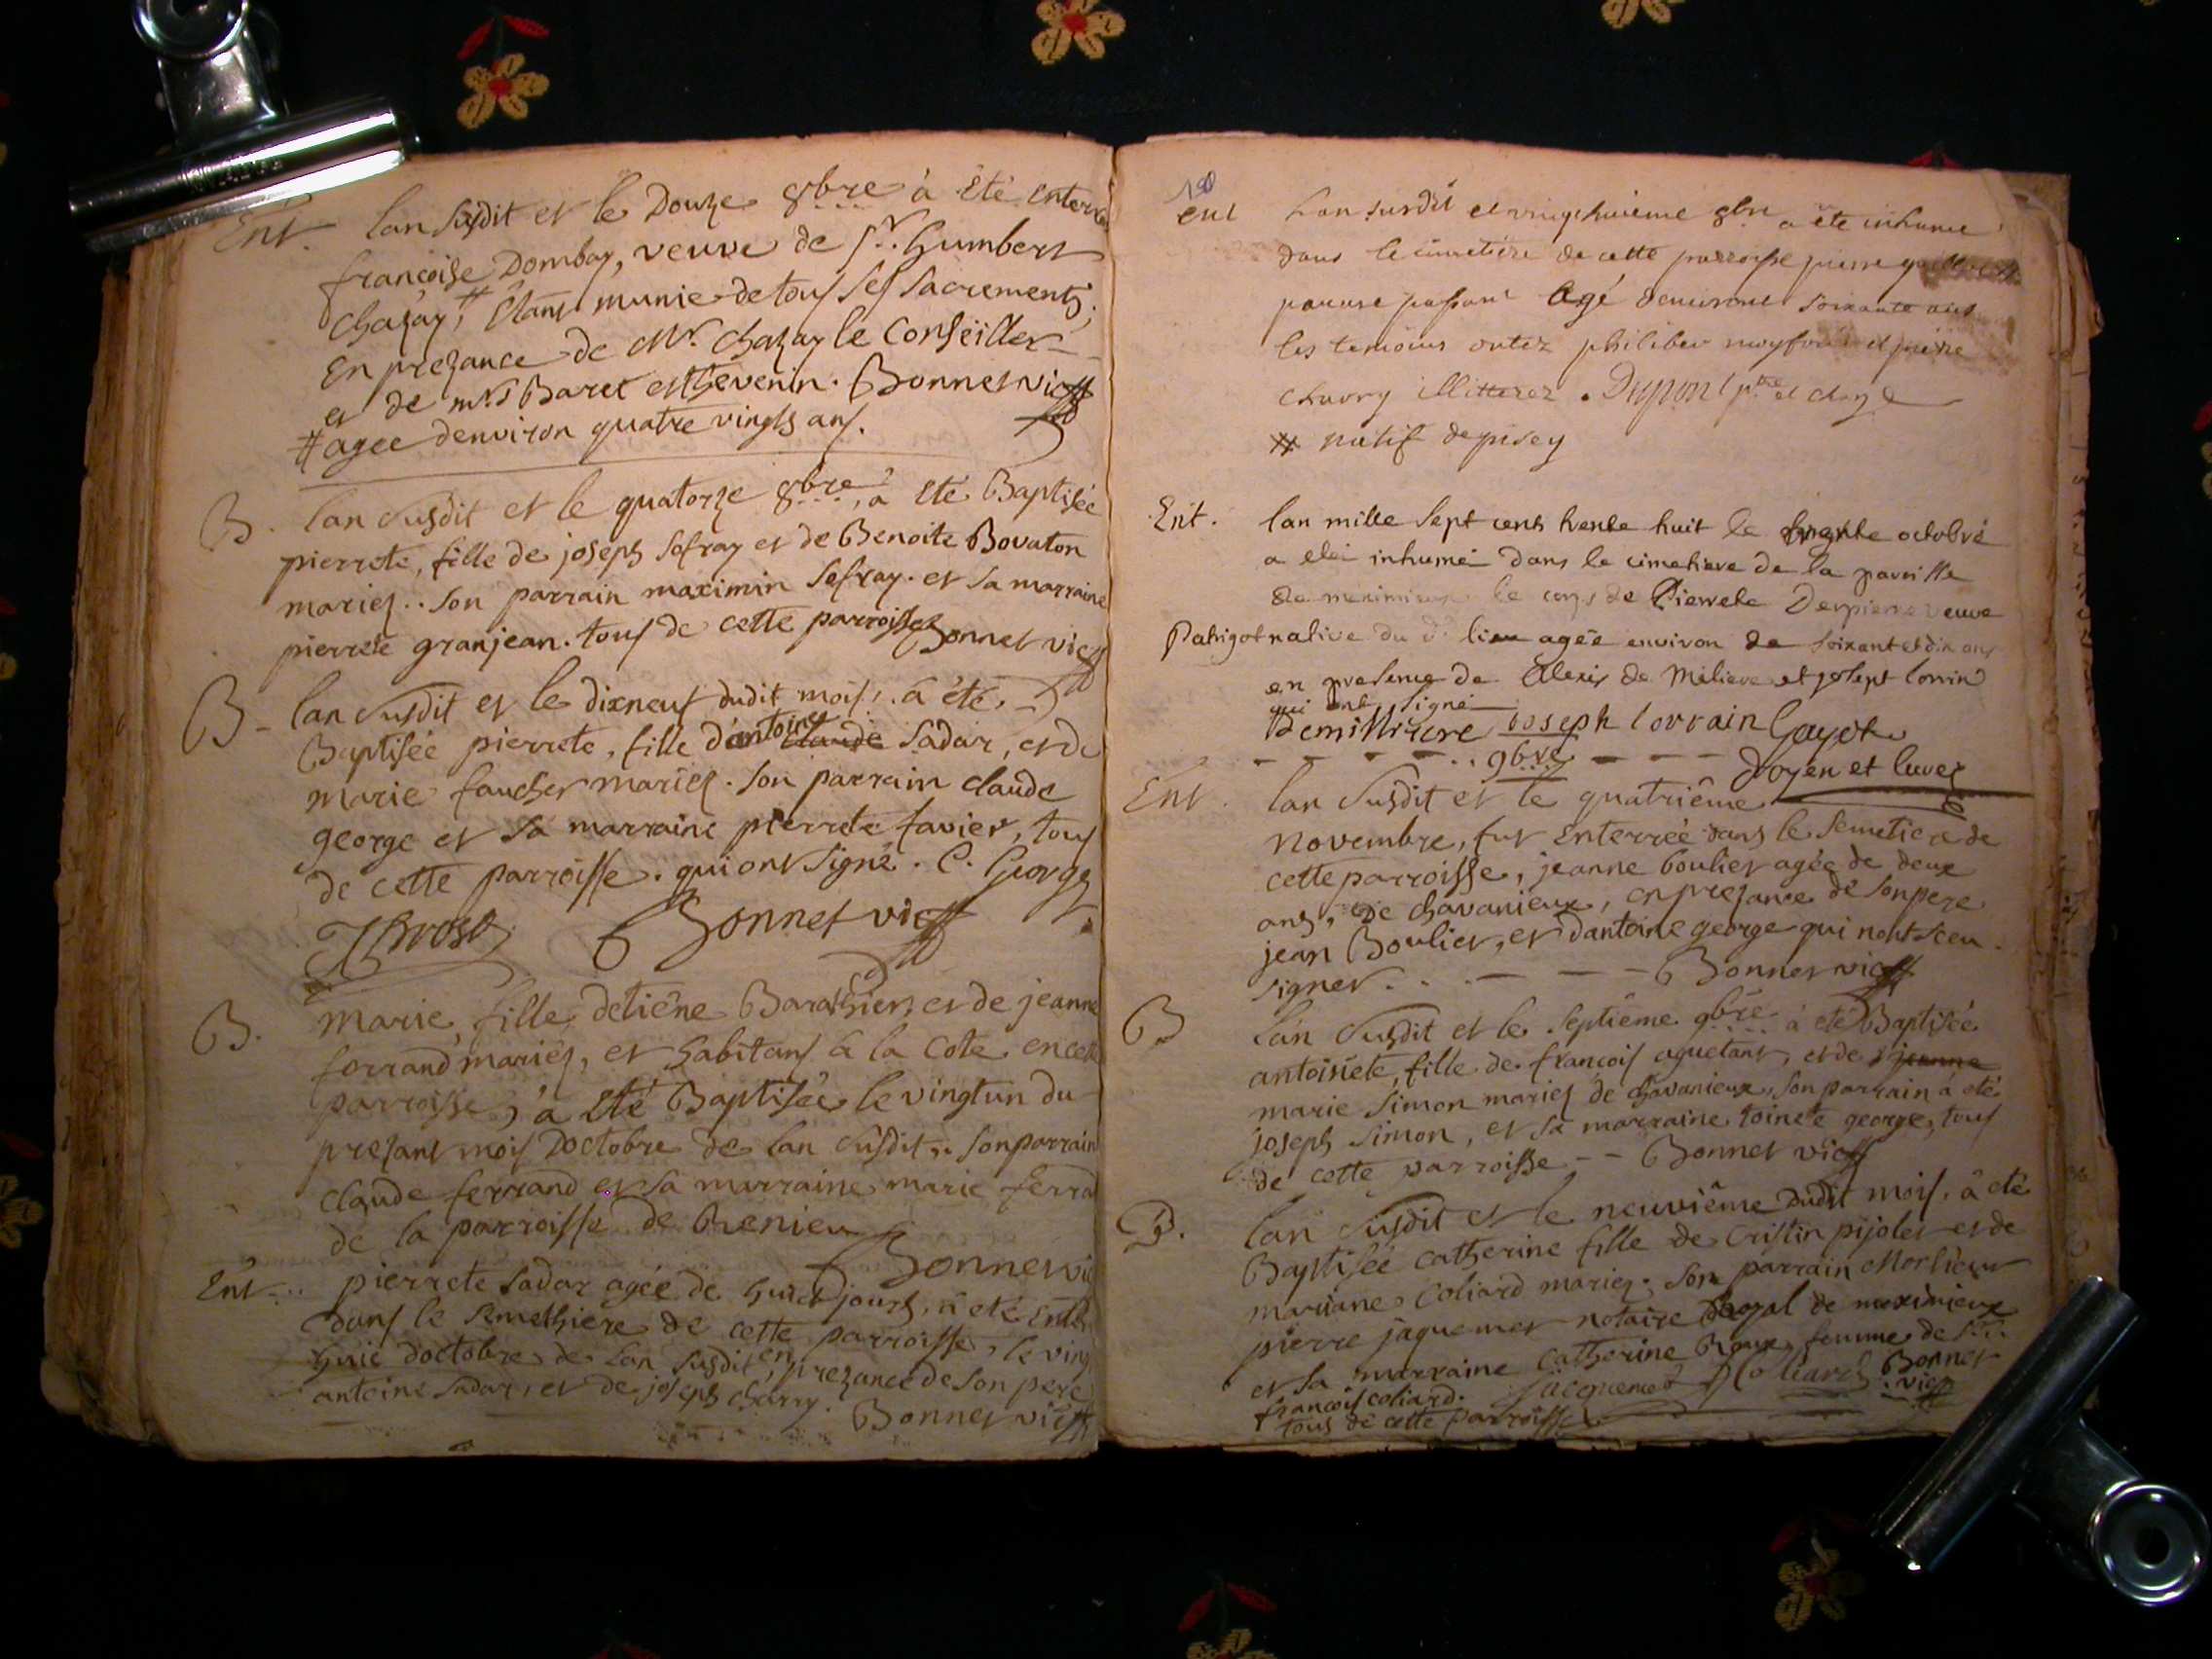 Ent. lan susdit et le Douze 8bre à été Enterrée
françoise Dombay, veuve de Sr. humbert
Chazay, # Etant munie de tous ses sacrements,
En prezance de Mr. Chazay le Conseiller
et de mrs Baret et thevenin. Bonnet vic
# agée denviron quatre vingts ans.
B. lan susdit et le quatorze 8bre, a été Baptisée
pierrete, fille de joseph sofray et de Benoite Bovaton
mariez.. son parrain maximin sofray. et sa marraine
pierrete granjean. tous de cette parroisse Bonnet vic
B - lan susdit et le dixneuf dudit mois, à été
Baptisée pierrete, fille dantoine claude sadar, et de
marie faucher mariez. son parrain claude
george et sa marraine pierrete favier, tous
de cette parroisse. qui ont signé. C. George
Bonnet vic
B. marie, fille detiêne Barathier, et de jeanne
ferrand mariéz, et habitans à la Cote en cette
parroisse, a été Baptisée le vingtun du
prezant mois Doctobre de lan susdit.. son parrain
claude ferrand et sa marraine marie ferra
de la parroisse de
Bonnet vic
Ent... pierrete sadar agée de huict jours, à eté Ente
dans le semethiere de cette parroisse, le ving
huic doctobre de lan susdit, en prezance de son pere
antoine sadar, et de joseph charry.
Bonnet vic
190
Ent Lan susdit et vingthuieme 8bre a été inhumé
dans le cimetière de cette parroisse pierre
pauvre passant Agé denviront soixante ans
les temoins ontez philiber et pierre
chavry illitterez. Dupont ptre
# natif de
Ent. lan mille sept cents trente huit le trente octobre
a eté inhumé dans le cimetiere de la paroisse
de meximieux le corps de Pierrete Derpierre veuve
Patrigot native du d. lieu agée environ de soixant et dix ans
en presence de Alexis de Miliere et joseph lorrin
qui ont signé
Demilliere joseph lorrain Gayot
- - - .. 9bre - - - - doyen et
Ent. lan susdit et le quatriême
novembre, fut Enterreé dans le semetiere de
cette parroisse, jeanne boulier agée de deux
ans, De chavanieux, en prezance de son pere
jean Boulier, et dantoine george qui nont sceu
signer. . . - - - Bonnet vic
B lan susdit et le septiême 9bre à eté Baptisée
antoinete, fille de francois aguetant, et de jeanne
marie simon mariez de chavanieux, son parrain à eté
joseph simon, et sa marraine toinete george, tous
de cette parroisse - - Bonnet vic
B. lan susdit et le neuviême Dudit mois, à eté
Baptisée catherine fille de cristin pijolet et de
mariane coliard mariez, son parrain
pierre jaquemet notaire Royal de meximieux
et sa marraine catherine Roux femme de Sr.
francois coliard. jacquemet Coliard Bonnet
tous de cette parroisse vic